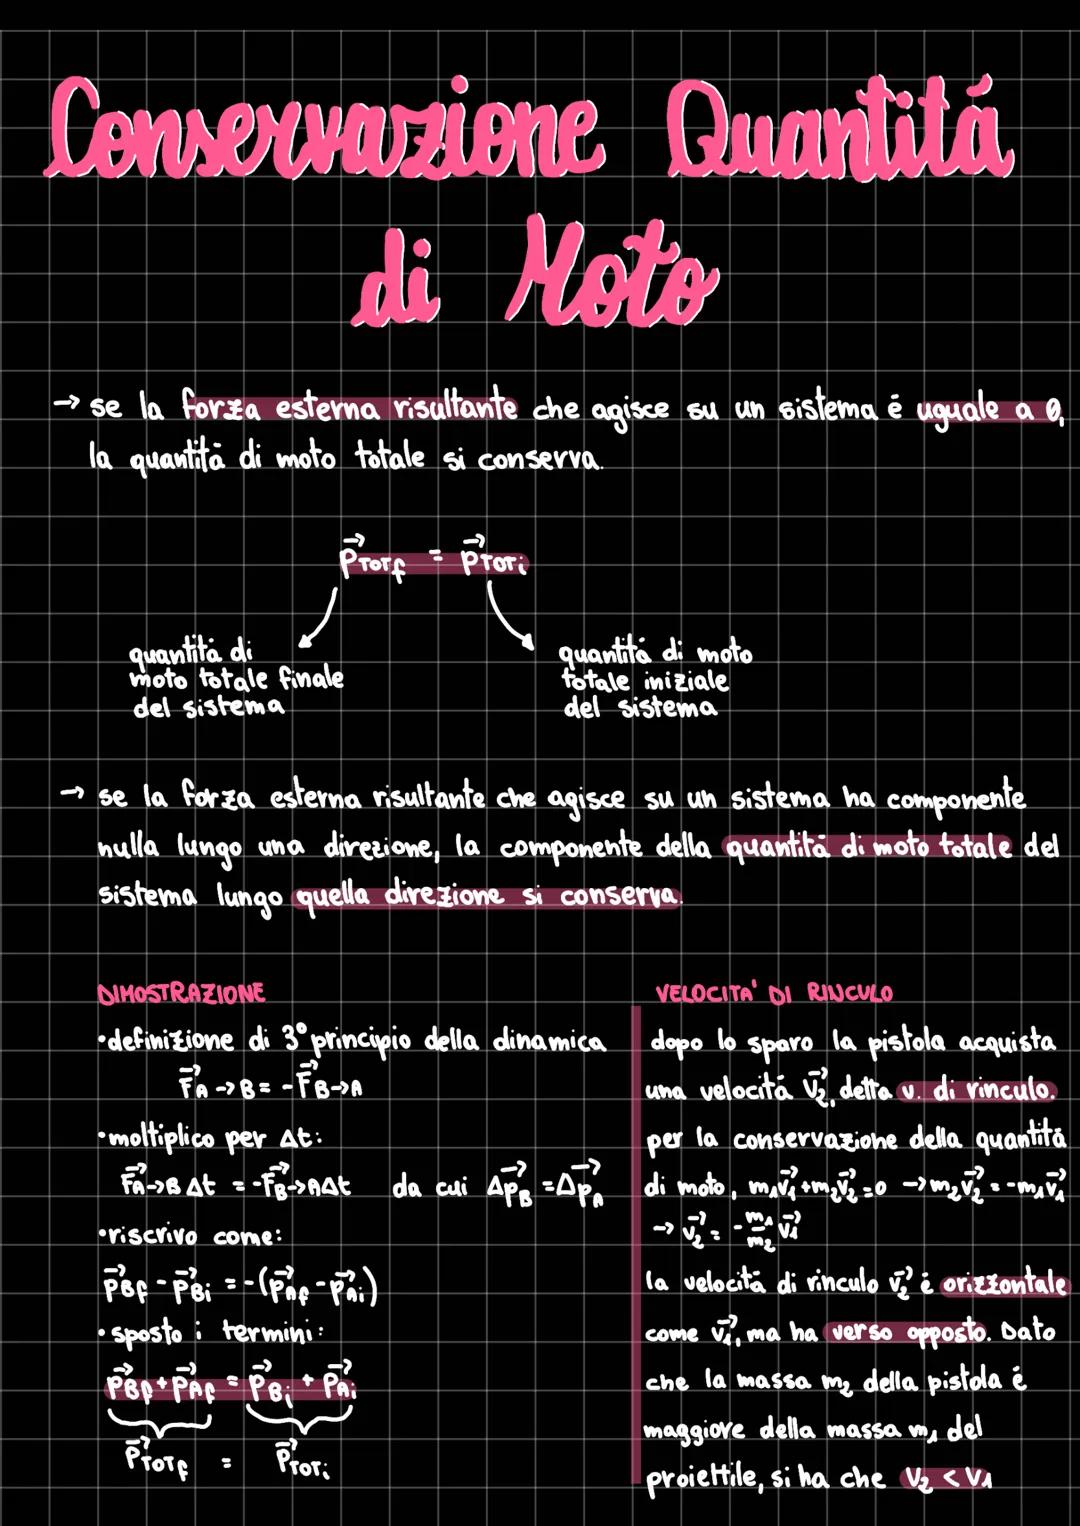 Conservazione Quantitá
di Moto
→ se la forza esterna risultante che agisce su un sistema é uguale a 0,
la quantità di moto totale si conserva.
p⃗TOTf = p⃗TOTi
quantità di
moto totale finale
del sistema
quantità di moto
totale iniziale
del sistema
→ se la forza esterna risultante che agisce su un sistema ha componente
nulla lungo una direzione, la componente della quantità di moto totale del
sistema lungo quella direzione si conserva.
DIMOSTRAZIONE
•definizione di 3° principio della dinamica
F⃗A→B = -F⃗B→A
•moltiplico per Δt:
F⃗A→B Δt = -F⃗B→A Δt da cui Δp⃗B = Δp⃗A
•riscrivo come:
p⃗Bf - p⃗Bi = -(p⃗Af - p⃗Ai)
•sposto i termini:
p⃗Bf + p⃗Af = p⃗Bi + p⃗Ai
p⃗TOTf = p⃗TOTi
VELOCITA' DI RINCULO
dopo lo sparo la pistola acquista
una velocitá v⃗2, detta v. di rinculo.
per la conservazione della quantitá
di moto, m1v⃗1+m2v⃗2=0 → m2v⃗2=-m1v⃗1
→ v⃗2 = - m1/m2 v⃗1
la velocità di rinculo v⃗2 é orizzontale
come v⃗1, ma ha verso opposto. Dato
che la massa m2 della pistola é
maggiore della massa m1 del
proiettile, si ha che v2 < v1